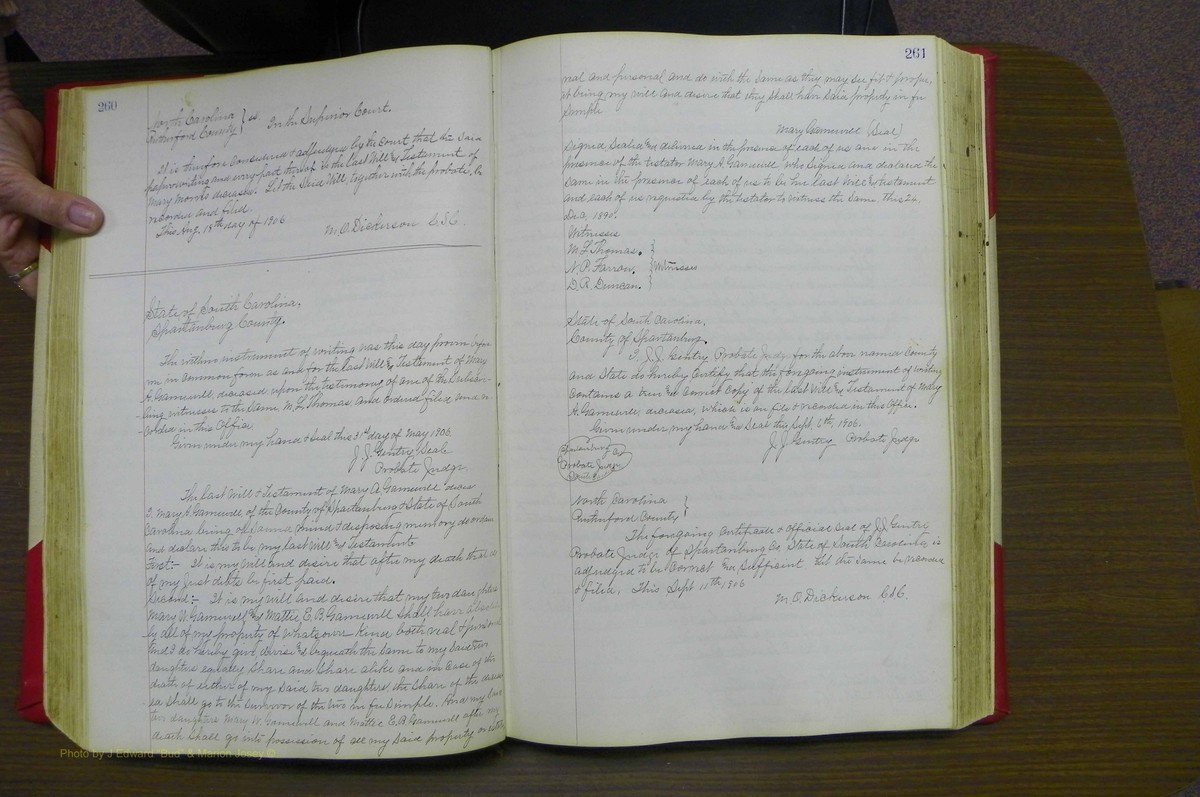 260
North Carolina } ss. In the Superior Court.
Rutherford County
It is therefore Considered & adjudged by the Court that the said
paperwriting and every part thereof is the last Will & Testament of
Mary Morris deceased. Let the Said Will, together with the probate, be
recorded and filed.
This Aug. 18th day of 1906
M. O. Dickerson C.S.C.
State of South Carolina,
Spartanburg County.
The within instrument of writing was this day proven before
me in Common form as and for the last Will & Testament of Mary
A. Gamewell, deceased upon the testimony of one of the Subscri-
-bing witnesses to the Same, M. L. Thomas, and ordered filed and re-
-corded in this Office
Given under my hand & Seal this 31st day of May 1906.
J. J. Gentry, Seal
Probate Judge.
The last Will & Testament of Mary A. Gamewell decea
I Mary A. Gamewell of the County of Spartanburg & State of South
Carolina being of Sound mind & disposing memory do ordain
and declare this to be my last Will & Testament
First:- It is my Will and desire that after my death that all
of my just debts be first paid.
Second:- It is my will and desire that my two daughters
Mary W. Gamewell & Mattie E. B. Gamewell Shall have absolute
ly all of my property of whatsoever kind both real & personal
And I do hereby give, devise & bequeath the same to my said two
daughters equally Share and Share alike and in Case of the
death of either of my Said two daughters, the Share of the deceas
ed Shall go to the Survivor of the two in fee Simple. And my Said
two daughters Mary W. Gamewell and Mattie E. B. Gamewell after my
death Shall go into possession of all my Said property
261
real and personal and do with the Same as they may see fit & proper
it being my will and desire that they shall have Said property in fee
Simple
Mary Gamewell (Seal)
Signed Sealed & delivered in the presence of each of us and in the
presence of the testator Mary A. Gamewell who Signed and declared the
Same in the presence of each of us to be her last Will & Testament
and each of us requested by the testator to witness the Same. this 26,
Dec, 1890.
Witnesses
M. L. Thomas. }
N. P. Farrow. } Witnesses
D. R. Duncan. }
State of South Carolina,
County of Spartanburg.
I, J. J. Gentry Probate Judge for the above named County
and State do hereby Certify that the foregoing instrument of writing
Contains a true & Correct Copy of the last Will & Testament of Mary
A. Gamewell, deceased, which is on file & recorded in this Office.
Given under my hand & Seal this Sept. 6th, 1906.
J. J. Gentry Probate Judge
Spartanburg Co
Probate Judge
North Carolina }
Rutherford County }
The foregoing Certificate & official Seal of J. J. Gentry
Probate Judge of Spartanburg Co, State of South Carolina, is
adjudged to be Correct and Sufficient. Let the Same be recorded
& filed. This Sept 11th, 1906
M. O. Dickerson C.S.C.
Photo by J Edward "Bud" & Marion Josey ©